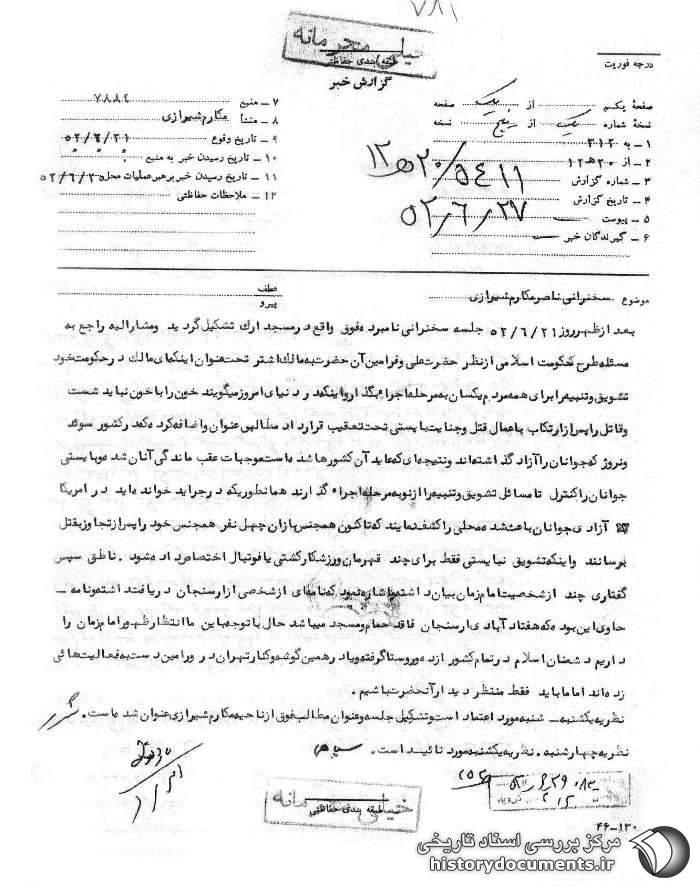 ۷۸۱
خیلی محرمانه
طبقه بندی حفاظتی
گزارش خبر
درجه فوریت
صفحهٔ یکم از یک صفحه
نسخهٔ شماره یک از پنج نسخه
۱ ـ به ۳۱۲
۲ ـ از ۲۰ ﻫ ۱۲
۳ ـ شماره گزارش ۱۲ﻫ۲۰/۵۴۱۱
۴ ـ تاریخ گزارش ۵۲/۶/۲۷
۵ ـ پیوست
۶ ـ گیرندگان خبر
۷ ـ منبع ۷۸۸۴
۸ ـ منشأ مکارم شیرازی
۹ ـ تاریخ وقوع ۵۲/۶/۲۱
۱۰ ـ تاریخ رسیدن خبر به منبع
۱۱ ـ تاریخ رسیدن خبر برهبر عملیات محل ۵۲/۶/۲۵
۱۲ ـ ملاحظات حفاظتی
موضوع سخنرانی ناصر مکارم شیرازی
عطف
پیرو
بعد از ظهر روز ۵۲/۶/۲۱ جلسه سخنرانی نامبرده فوق واقع در مسجد ارك تشکیل گردید ومشارالیه راجع به
مسئله طرح حکومت اسلامی از نظر حضرت علی و فرامین آن حضرت به مالك اشتر تحت عنوان اینکه ای مالك در حکومت خود
تشویق و تنبیه را برای همه مردم یکسان به مرحله اجراء بگذار و اینکه در دنیای امروز میگویند خون را با خون نباید شست
و قاتل را پس از ارتکاب باعمال قتل و جنایت بایستی تحت تعقیب قرار داد مطالبی عنوان و اضافه کرده که در کشور سوئد
و نروژ که جوانان را آزاد گذاشته اند و نتیجه ای که عاید آن کشورها شده است موجبات عقب ماندگی آنان شده و بایستی
جوانان را کنترل تا مسائل تشویق و تنبیه را از نو به مرحله اجراء گذارند همانطوریکه در جراید خوانده اید در امریکا
آزادی جوانان باعث شده محلی را کشف نمایند که تاکنون همجنس بازان چهل نفر همجنس خود را پس از تجاوز بقتل
برسانند و اینکه تشویق نبایستی فقط برای چند قهرمان ورزشکار کشتی یا فوتبال اختصاص داده شود . ناطق سپس
گفتاری چند از شخصیت امام زمان بیان داشته و اشاره نمود که نامه ای از شخصی از ارسنجان دریافت داشته و نامه ـ
حاوی این بوده که هفتاد آبادی ارسنجان فاقد حمام و مسجد میباشد حال با توجه باین ما انتظار ظهور امام زمان را
داریم دشمنان اسلام در تمام کشور از ده و روستا گرفته و یا در همین گوشه و کنار تهران در ورامین دست به فعالیت هائی
زده اند اما ما باید فقط منتظر دیدار آنحضرت باشیم .
نظریه یکشنبه ـ شنبه مورد اعتماد است و تشکیل جلسه و عنوان مطالب فوق از ناحیه مکارم شیرازی عنوان شده است .
نظریه چهارشنبه . نظریه یکشنبه مورد تائید است .
خیلی محرمانه
طبقه بندی حفاظتی
۴۶-۱۳۰
مرکز بررسی اسناد تاریخی
historydocuments.ir